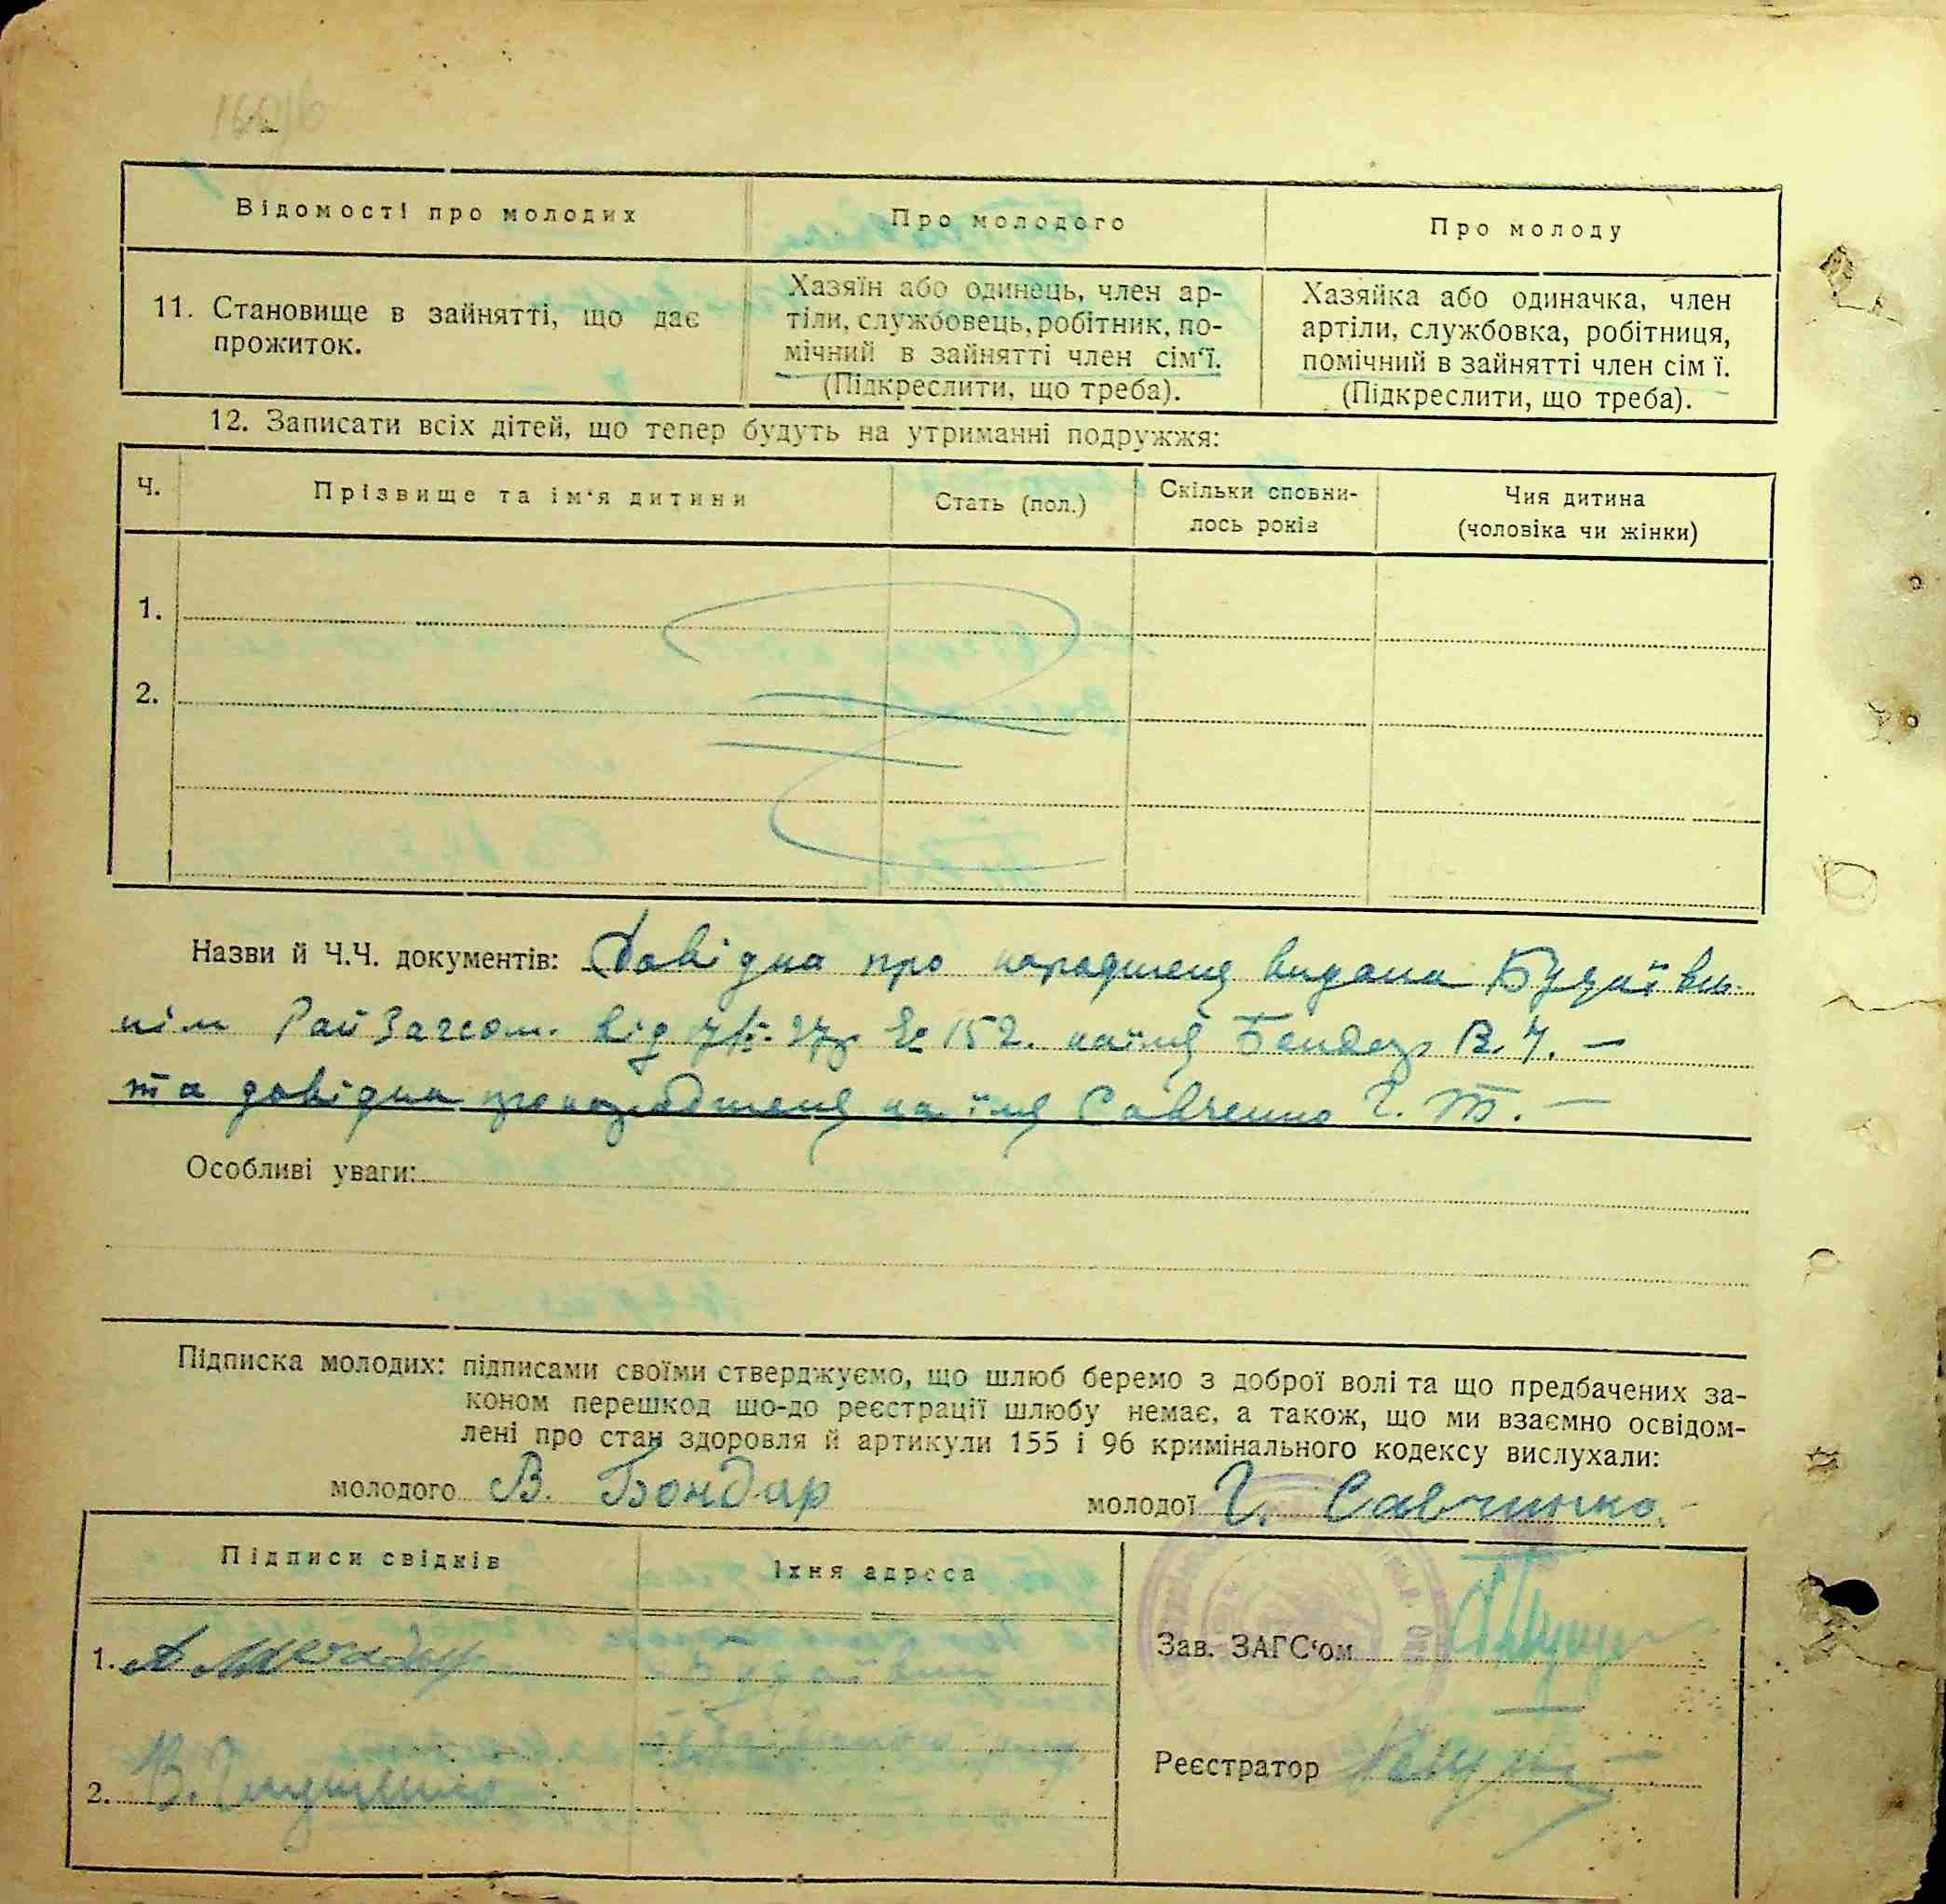 Відомості про молодих
Про молодого
Про молоду
11. Становище в зайнятті, що дає
прожиток.
Хазяїн або одинець, член ар-
тіли, службовець, робітник, по-
мічний в зайнятті член сім'ї.
(Підкреслити, що треба).
Хазяйка або одиначка, член
артіли, службовка, робітниця,
помічний в зайнятті член сім ї.
(Підкреслити, що треба).
12. Записати всіх дітей, що тепер будуть на утриманні подружжя:
Ч.
Прізвище та ім'я дитини
Стать (пол.)
Скільки сповни-
лось років
Чия дитина
(чоловіка чи жінки)
1.
2.
Назви й Ч.Ч. документів: Довідка про народження видана
Рай Загсом. від № 152. на ім'я В. –
та довідка про народження на ім'я Савченко Г. Т. –
Особливі уваги:
Підписка молодих: підписами своїми стверджуємо, що шлюб беремо з доброї волі та що предбачених за-
коном перешкод що-до реєстрації шлюбу немає, а також, що ми взаємно освідом-
лені про стан здоровля й артикули 155 і 96 кримінального кодексу вислухали:
молодого В. Бондар
молодої Г. Савчинко.
Підписи свідків
Їхня адреса
1. А
2. В.
Зав. ЗАГС'ом
Реєстратор